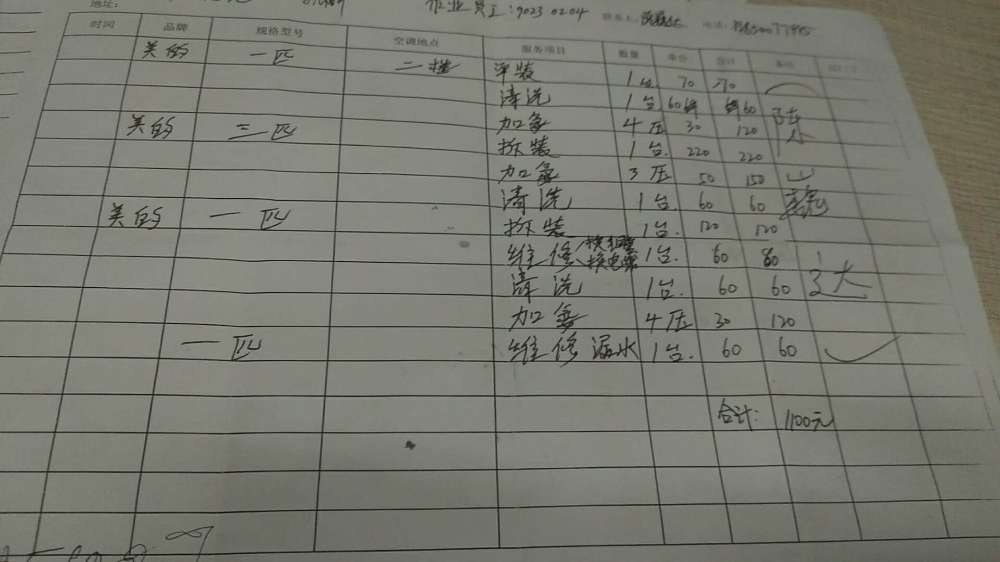 地址:
作业员工:9023 0204 联系人: 电话:
时间 品牌 规格型号 空调地点 服务项目 数量 单价 合计 备注
美的 一匹 二楼 浮装 1台 70 70
清洗 1台 60 60
美的 三匹 加氟 4压 30 120
拆装 1台. 220 220
加氟 3压 50 150
清洗 1台. 60 60
美的 一匹 拆装 1台. 120 120
维修 1台. 60 80
清洗 1台. 60 60
加氟 4压 30 120
一匹 维修漏水 1台. 60 60
合计: 1100元